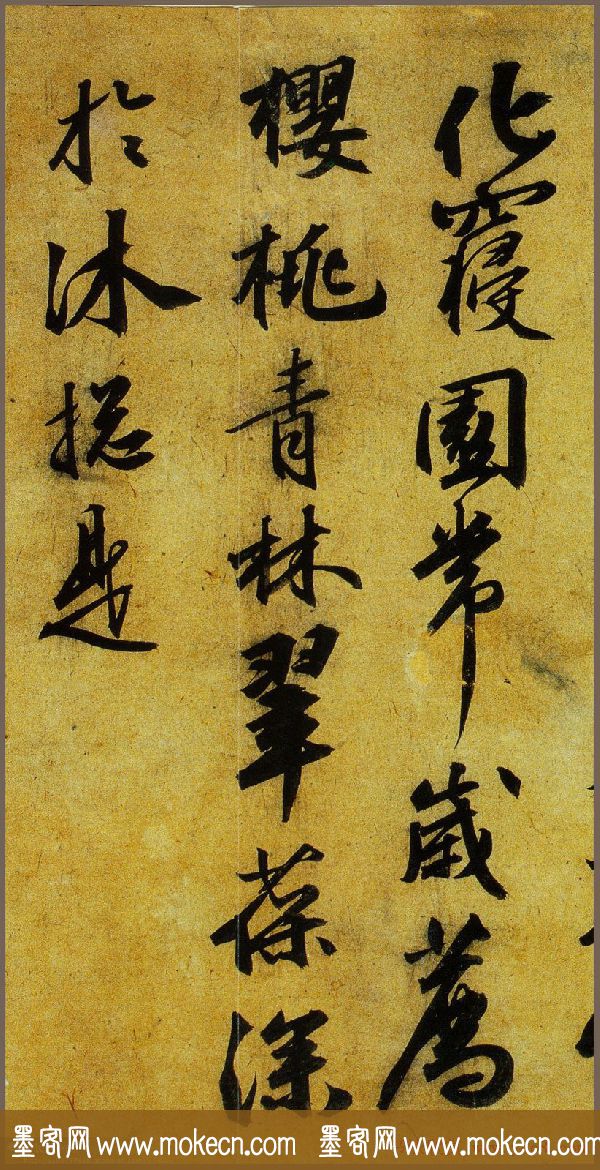 化寢園常歲薦
櫻桃青林翠葆深
於沐揔是
墨客网 www.mokecn.com 墨客网 www.mokecn.com